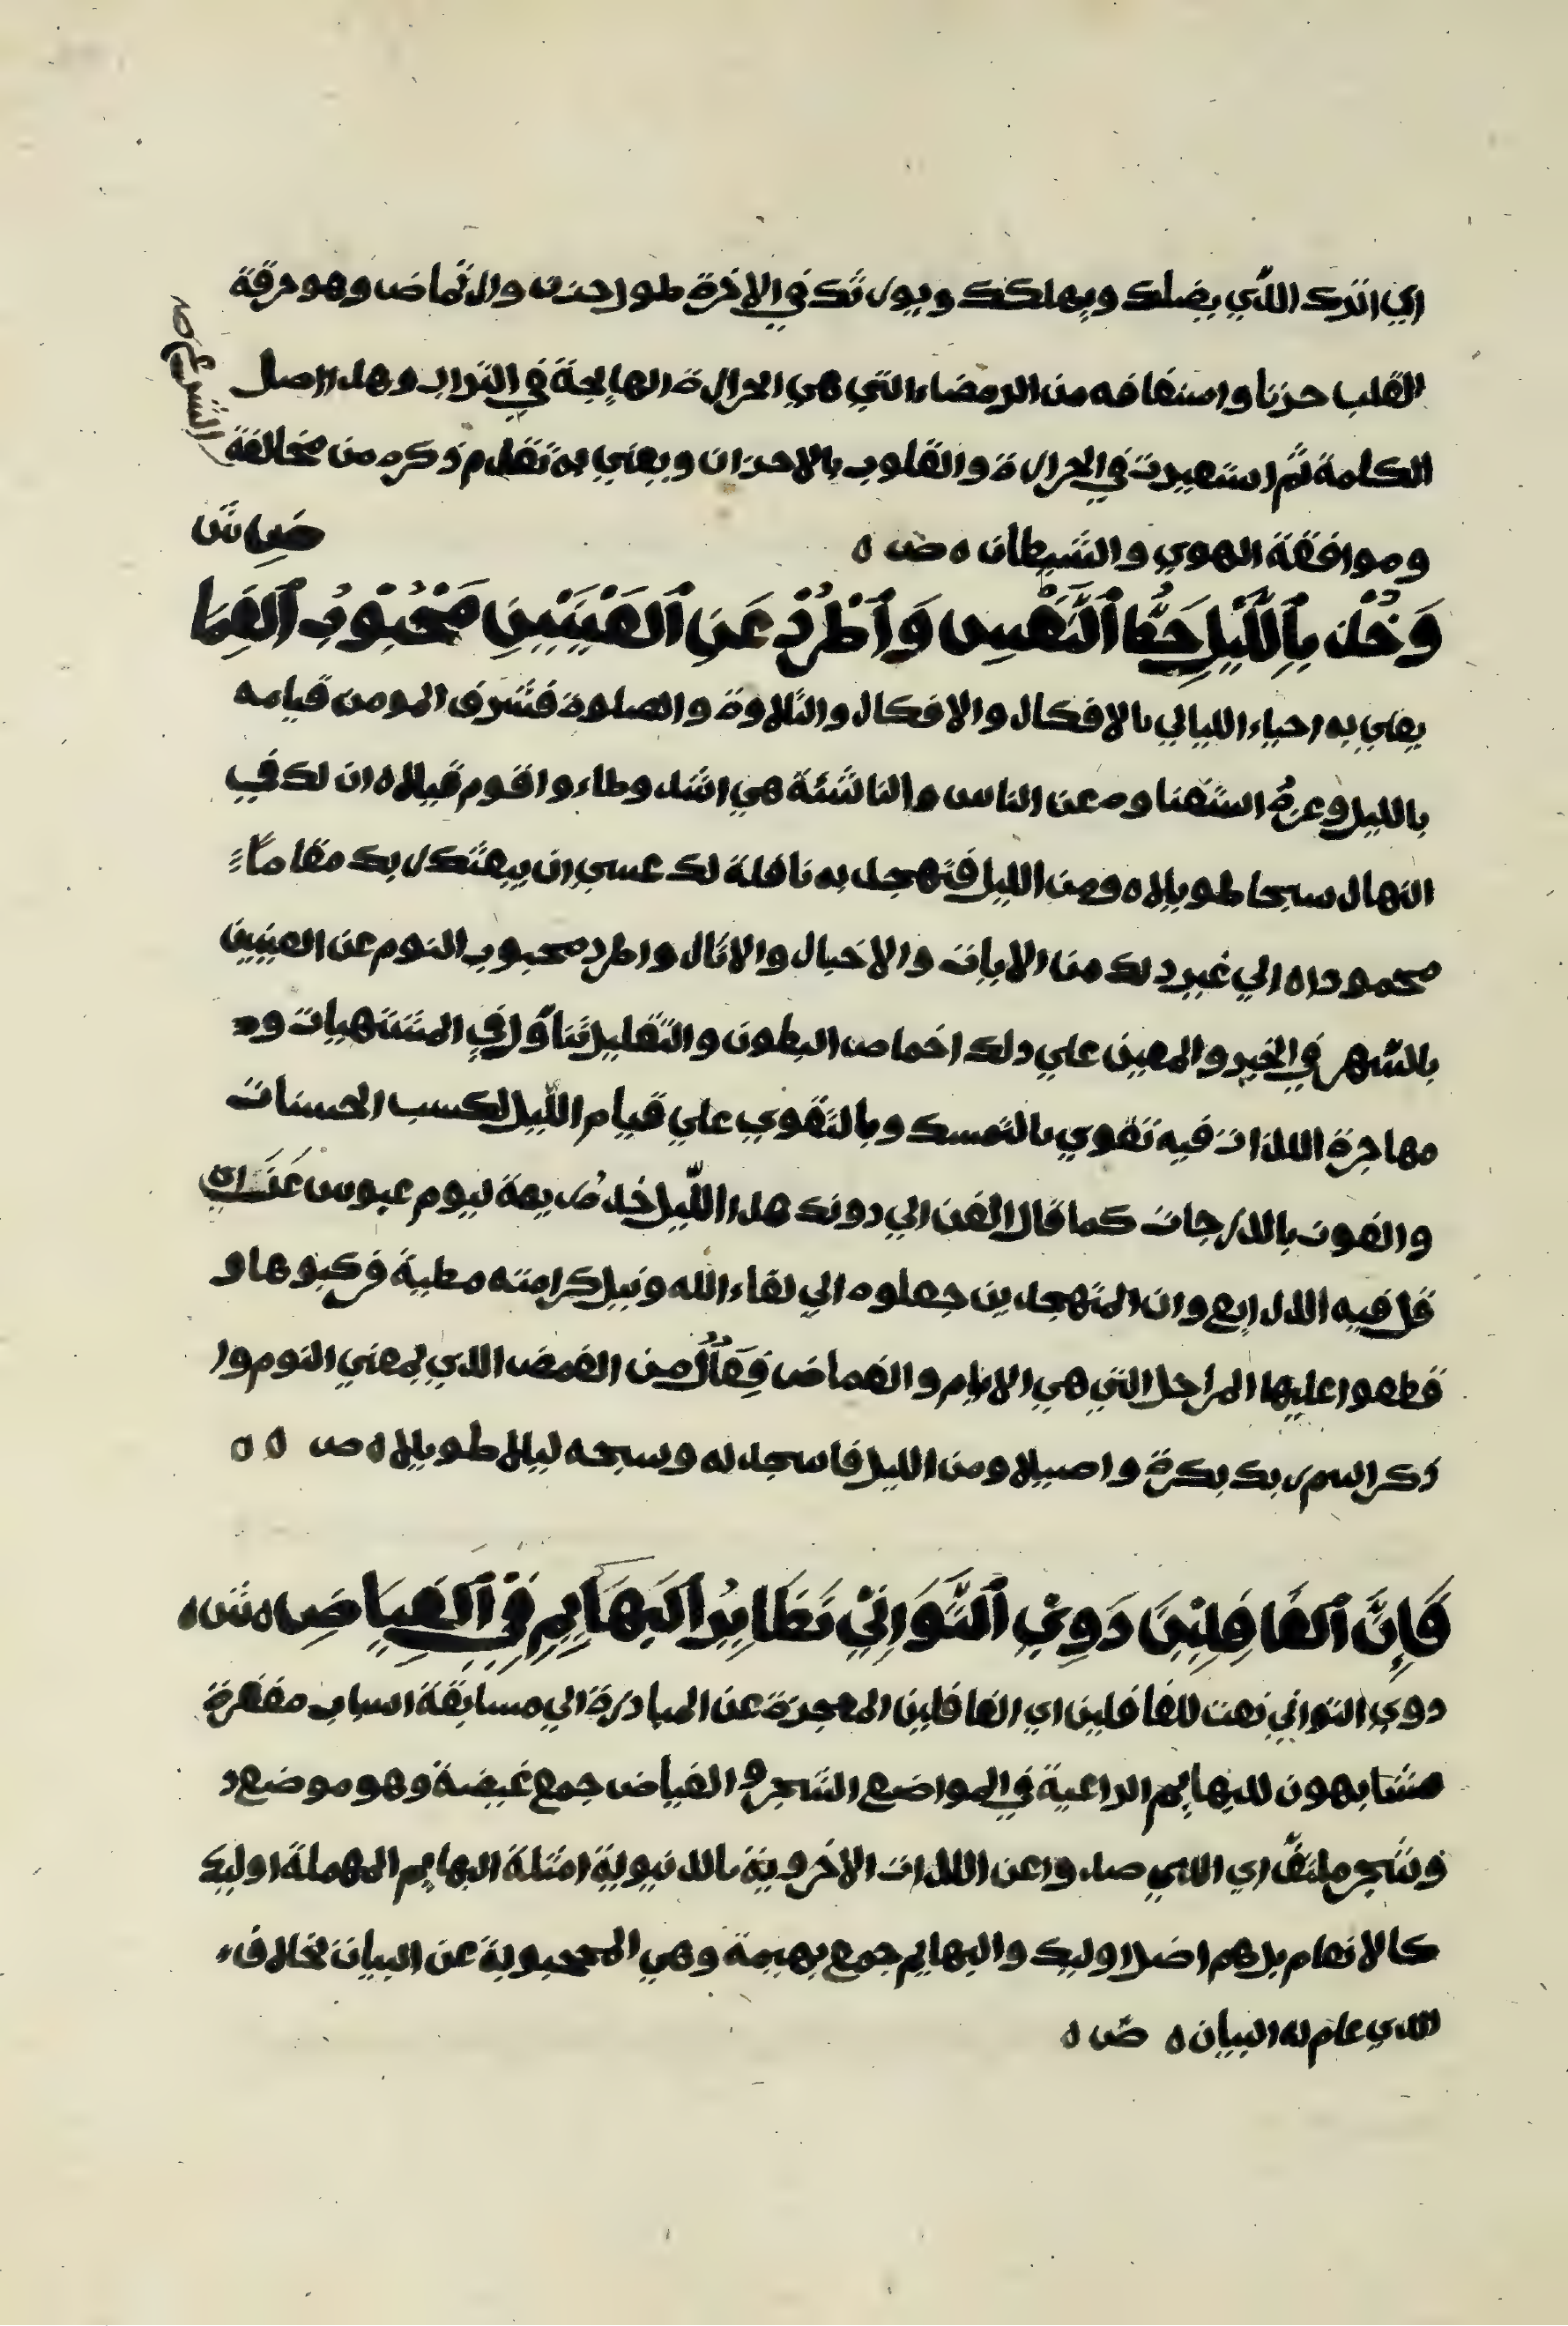 اي اترك الذي يضلك ويهلكك ويورثك في الاخرة طور حزن والارتماض وهو حرقة
القلب حزنا واستفاقه من الرمضاء التي هي الحرارة الهايجة في التراب وهذا اصل
الكلمة ثم استعيرت في الحرارة والقلوب بالاحزان ويعني به تقدم ذكره من مخالفة
الشرع ص
وموافقة الهوي والشيطان ه ض ه
ض ش
وَخُذ بِاللَّيْلِ حَظَّ النَّفْسِ وَاطْرُدْ عَنِ الْعَيْنَيْنِ مَحْبُوبُ الْغِمَا
يعني به احياء الليالي بالافكار والاذكار والتلاوة والصلوة فشرف المومن قيامه
بالليل وعزه استغناوه عن الناس والناشئة هي اشد وطاء واقوم قيلا ه ان لك في
النهار سبحا طويلا ه ومن الليل فتهجد به نافلة لك عسي ان يبعثك ربك مقاما
محمودا ه الي غير ذلك من الايات والاخبار والاثار واطرد محبوب النوم عن العينين
بالسهر في الخير والمعين علي ذلك اخماص البطون والتقليل تناول في المشتهيات و
مهاجرة اللذات فيه تقوي بالتمسك وبالتقوي علي قيام الليل لكسب الحسنات
والفوز بالدرجات كما قال الغزالي دونك هذا الليل خذ ذريعة ليوم عبوس عز اي
قل فيه الذرايع وان المتهجدين جعلوه الي لقاء الله ونيل كرامته مطية فركبوها و
قطعوا عليها المراحل التي هي الايام والغماض فعال من الغمض الذي بمعني النوم وا
ذكر اسم ربك بكرة واصيلا ومن الليل فاسجد له وسبحه ليلا طويلا ه ص ه ه
فَإِنَّ الْغَافِلِيْنَ ذَوِي التَّوَانِيْ نَظَايِرُ الْبَهَايِمِ فِي الْغِيَاضِ ه ش ه
ذوي التواني نعت للغافلين اي الغافلين المعجزة عن المبادرة الي مسابقة اسباب مغفرة
مشابهون للبهايم الراعية في المواضع الشجر والغياض جمع غيضة وهو موضع ذ
و شجر ملتف اي الذي صدوا عن اللذات الاخروية بالدنيوية امثلة البهايم المهملة اوليك
كالانعام بل هم اضل اوليك والبهايم جمع بهيمة وهي المحجوبة عن البيان بخلاف
الذي عام له البيان ه ض ه